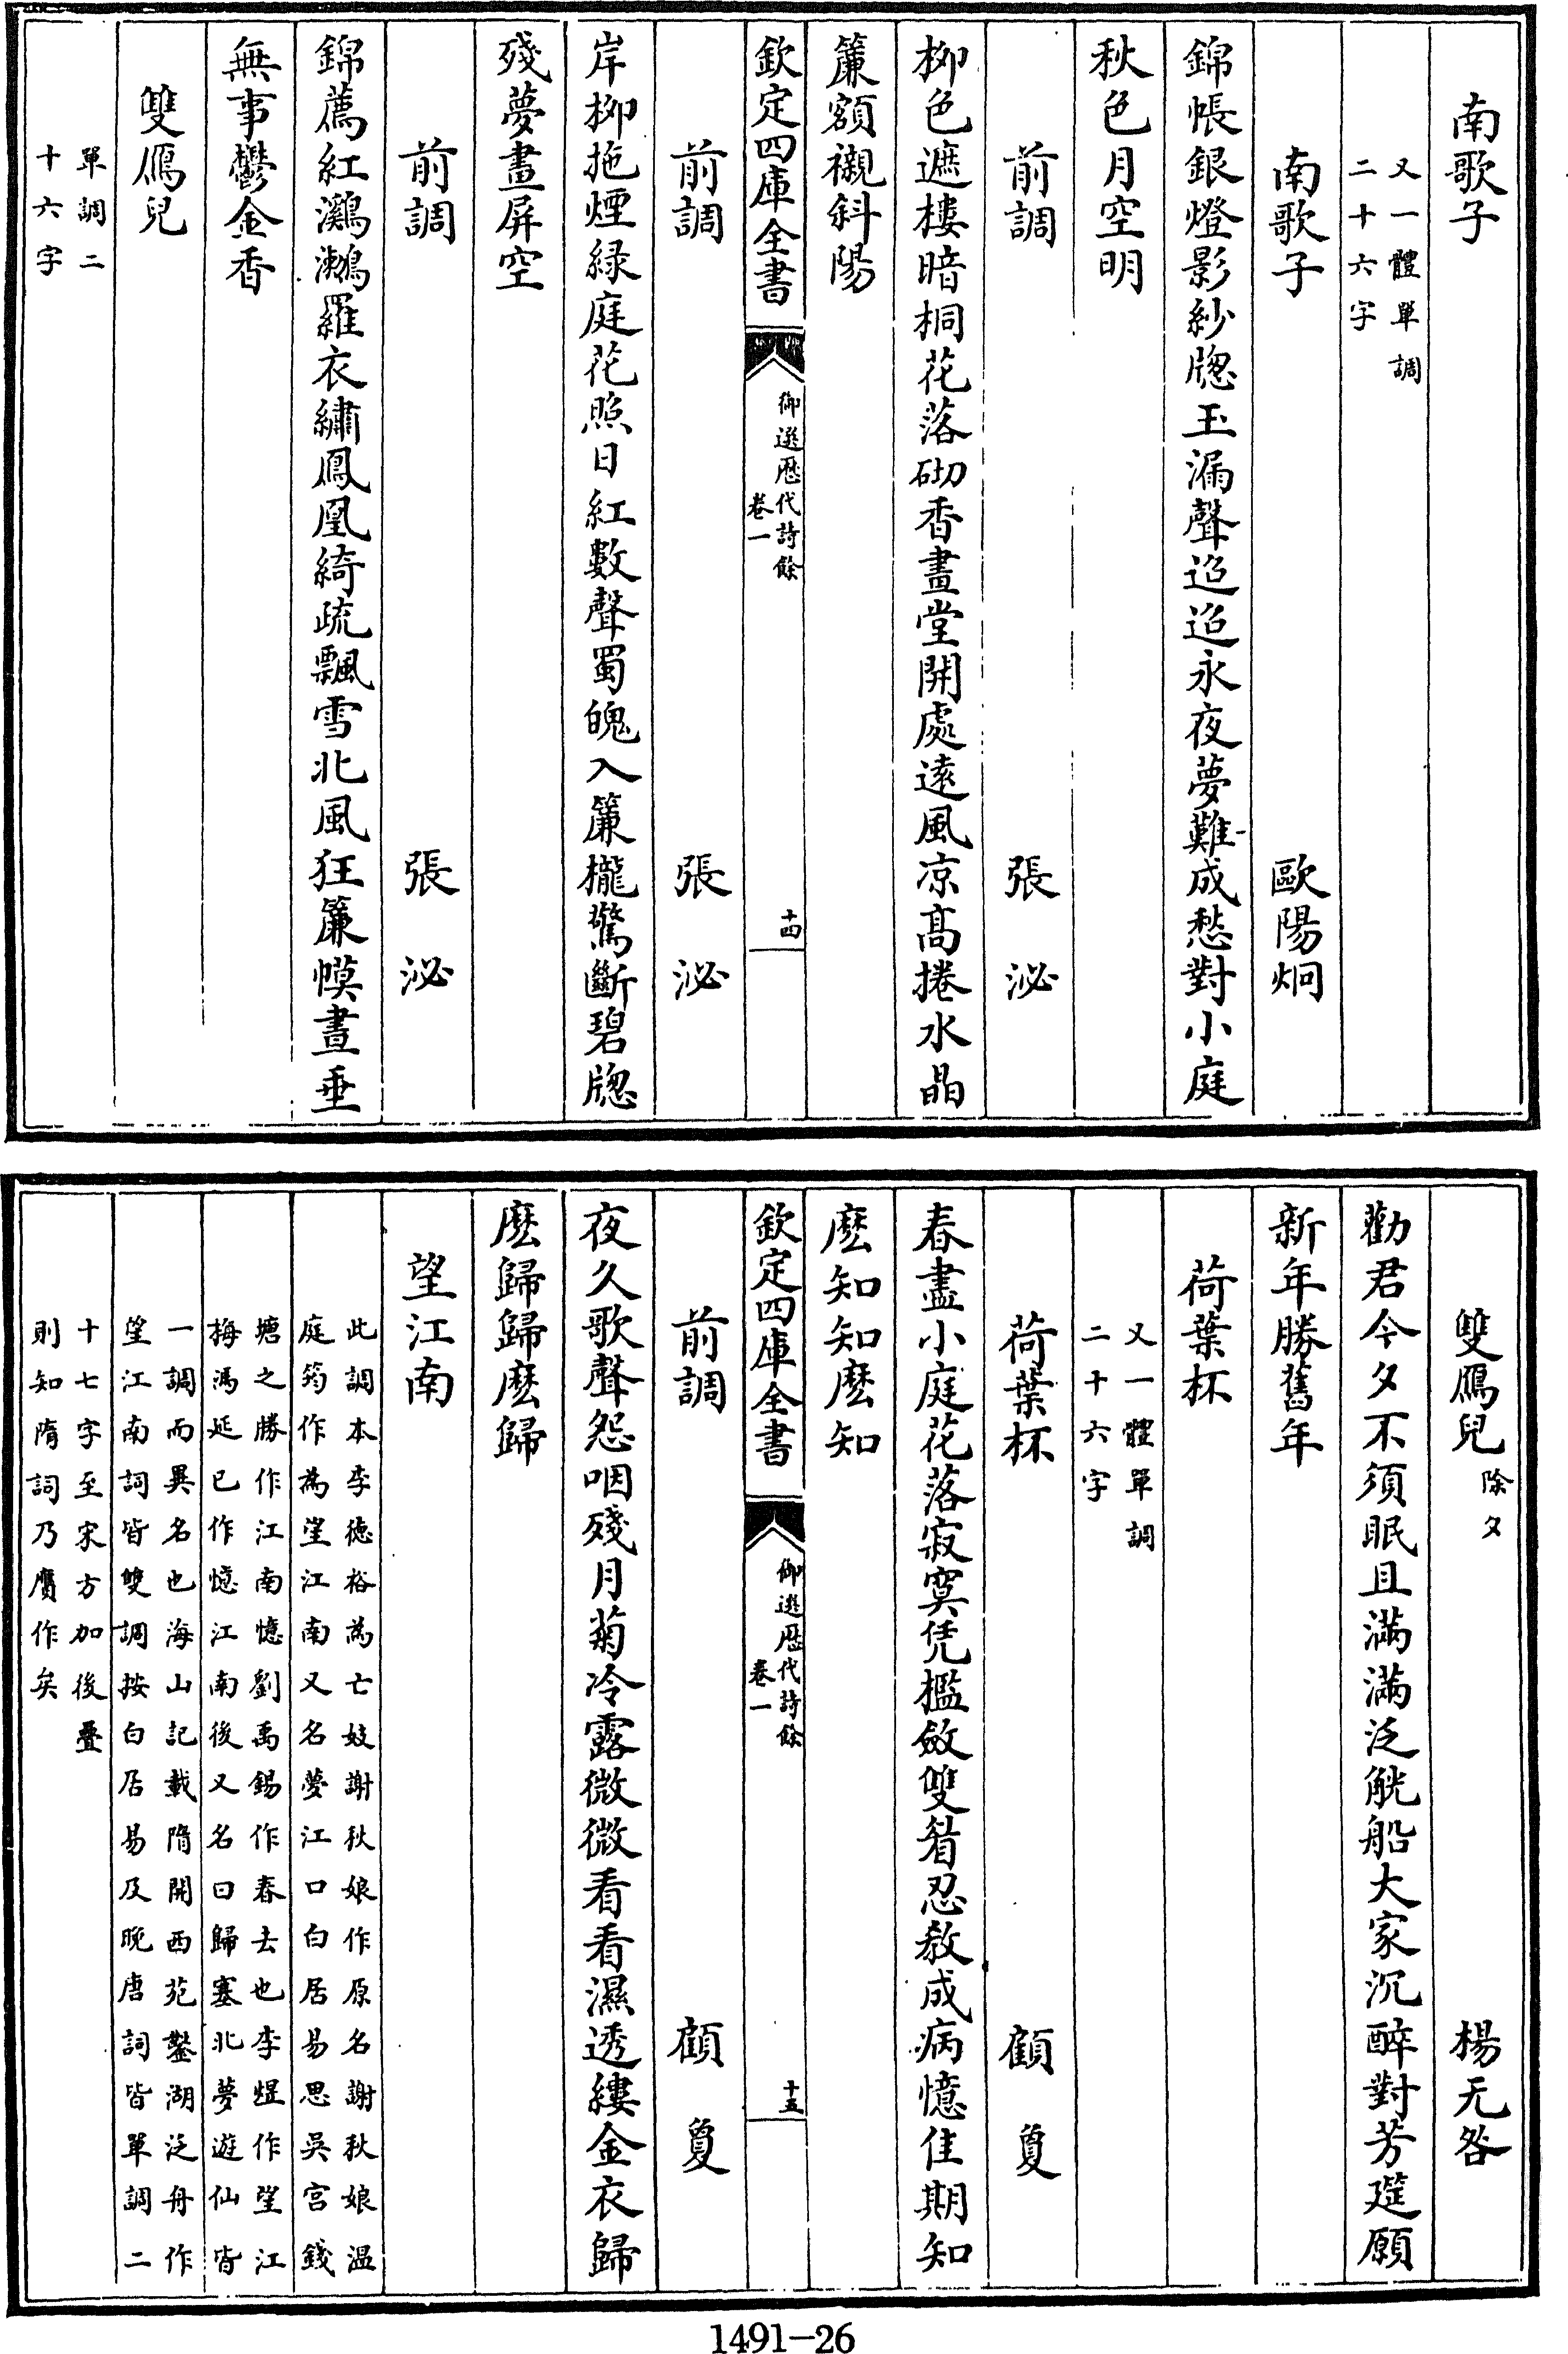 南歌子
又一體單調
二十六字
南歌子　歐陽炯
錦帳銀燈影紗牕玉漏聲迢迢永夜夢難成愁對小庭
秋色月空明
前調　張泌
柳色遮樓暗桐花落砌香畫堂開處逺風凉髙捲水晶
簾額襯斜陽
欽定四庫全書
御選歷代詩餘
卷一
十四
前調　張泌
岸柳拖煙緑庭花照日紅數聲蜀魄入簾櫳驚斷碧牕
殘夢畫屏空
前調　張泌
錦薦紅鸂鶒羅衣繡鳳凰綺疏飄雪北風狂簾幙晝垂
無事鬱金香
雙鴈兒
單調二
十六字
雙鴈兒除夕　楊无咎
勸君今夕不須眠且滿滿泛觥船大家沉醉對芳筵願
新年勝舊年
荷葉杯
又一體單調
二十六字
荷葉杯　顧敻
春盡小庭花落寂寞凭檻斂雙眉忍教成病憶佳期知
麽知知麽知
欽定四庫全書
御選歷代詩餘
卷一
十五
前調　顧敻
夜久歌聲怨咽殘月菊冷露微微看看濕透縷金衣歸
麽歸歸麽歸
望江南
此調本李徳裕為亡妓謝秋娘作原名謝秋娘温
庭筠作為望江南又名夢江口白居易思吳宫錢
塘之勝作江南憶劉禹錫作春去也李煜作望江
梅馮延巳作憶江南後又名曰歸塞北夢遊仙皆
一調而異名也海山記載隋開西苑鑿湖泛舟作
望江南詞皆雙調按白居易及晚唐詞皆單調二
十七字至宋方加後疊
則知隋詞乃贗作矣
1491-26